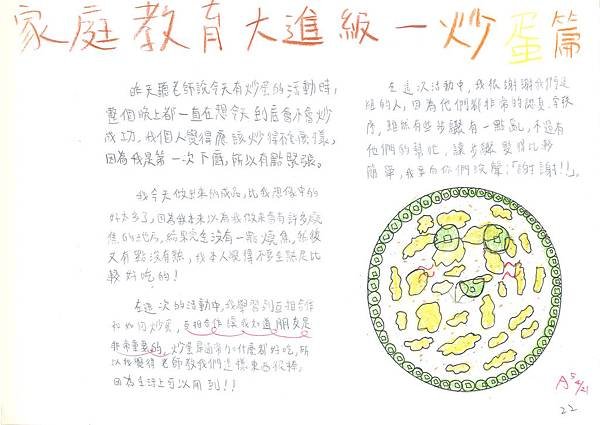 家庭教育大進級—炒蛋篇
昨天聽老師說今天有炒蛋的活動時，
整個晚上都一直在想今天到底會不會炒
成功，我個人覺得應該炒得不怎麼樣，
因為我是第一次下廚，所以有點緊張。
我今天做出來的成品，比我想像中的
好太多了，因為我本來以為我做來會有許多燒
焦的地方，結果完全沒有一點燒焦，然後
又有點沒有熟，我本人覺得不要全熟是比
較好吃的！
在這次的活動中，我學習到互相合作
和如何炒蛋，互相合作讓我知道朋友是
非常重要的，炒蛋是通常加什麼都好吃，所
以我覺得老師教我們這樣東西很棒，
因為生活上可以用到！！
在這次活動中，我很謝謝我們這
組的人，因為他們都非常的認真、守秩
序，雖然有些步驟有一點亂，不過有
他們的幫忙，讓步驟變得比較
簡單，我要向你們說聲：「謝謝！！」。
A 5
4/21
22